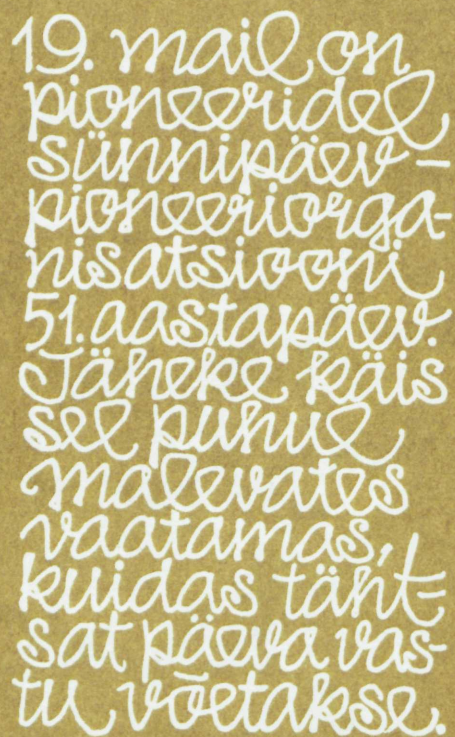 19. mail on
pioneeridel
sünnipäev –
pioneeriorga-
nisatsiooni
51. aastapäev.
Jäneke käis
sel puhul
malevates
vaatamas,
kuidas täht-
sat päeva vas-
tu võetakse.